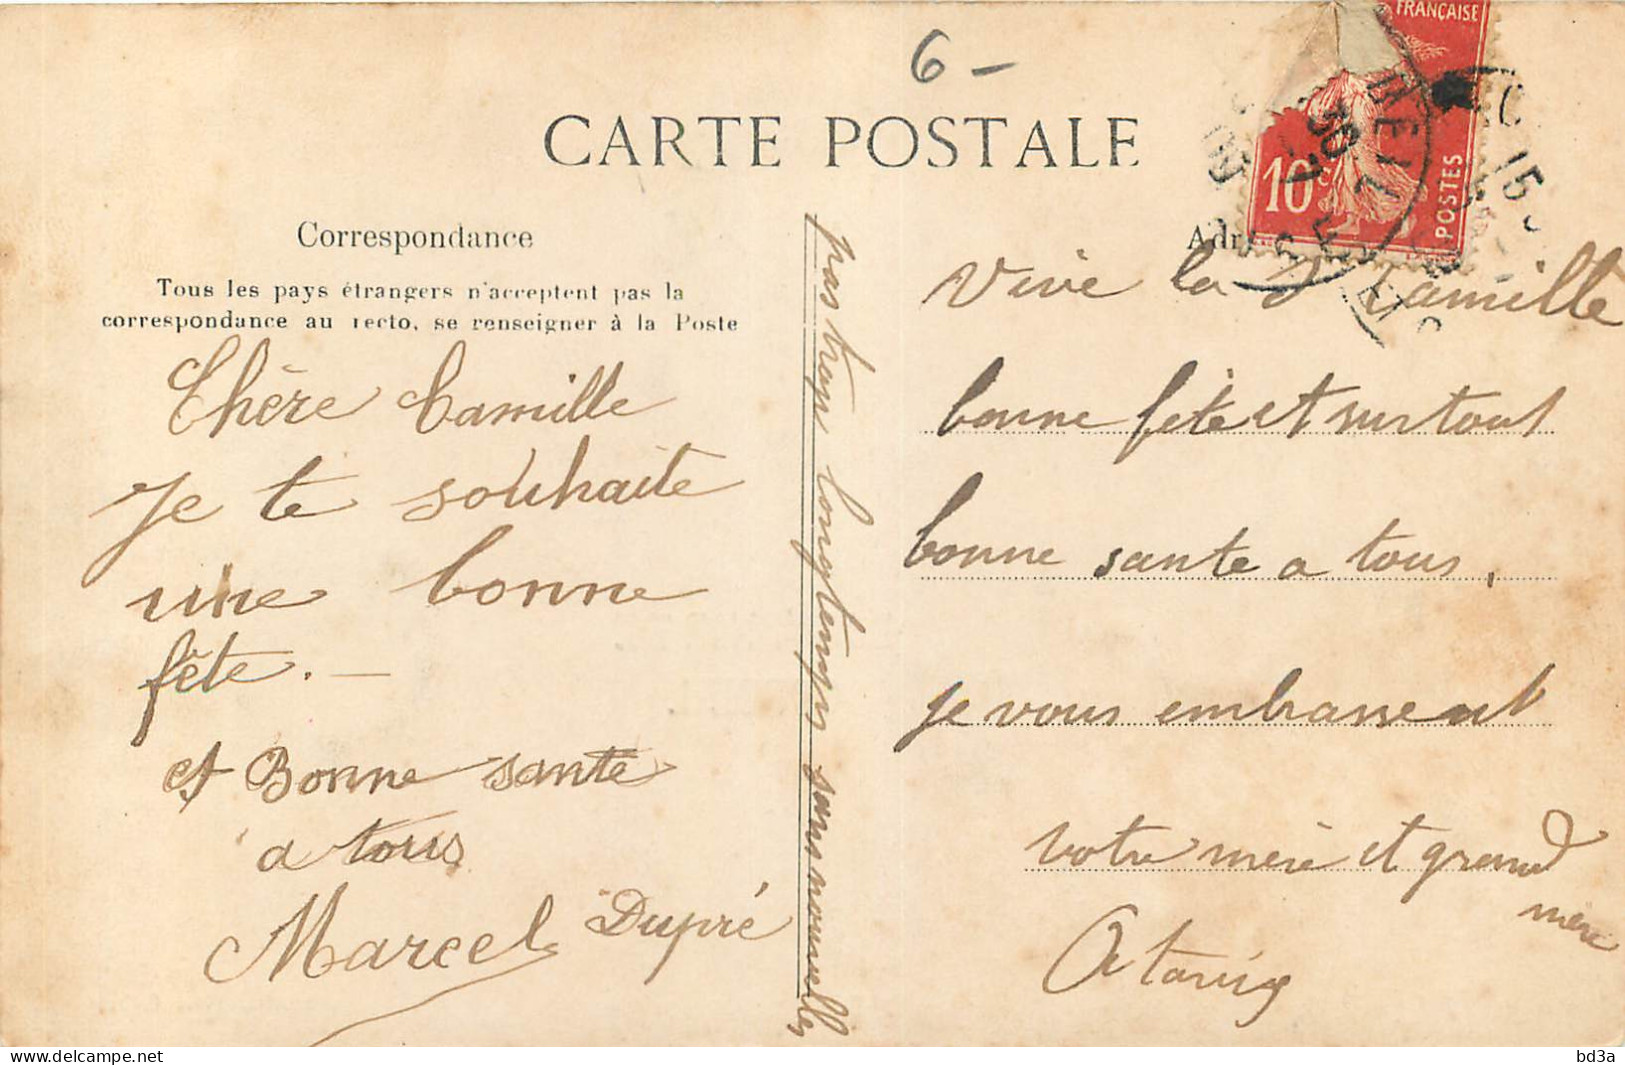 6 -
CARTE POSTALE
Correspondance
Tous les pays étrangers n'acceptent pas la
correspondance au recto, se renseigner à la Poste
Chère Camille
Je te souhaite
une bonne
fête. —
et Bonne sante
a tous
Marcel Dupré
pas trop longtemps sans nouvelles
FRANÇAISE
10c
POSTES
Adr
Vive la Camille
bonne fête et surtout
bonne sante a tous,
je vous embrasse
votre mère et grand
mère
www.delcampe.net
bd3a